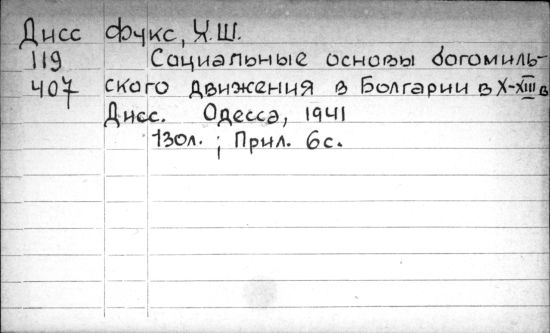 Дисс Фукс, Х.Ш.
119 Социальные основы богомиль-
407 ского движения в Болгарии в X-XIII в
Дисс. Одесса, 1941
130л. ; Прил. 6с.